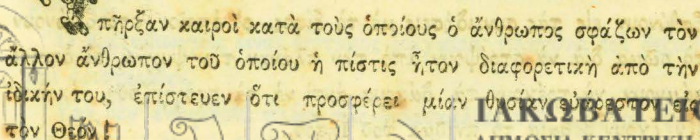 Ὑπῆρξαν καιροὶ κατὰ τοὺς ὁποίους ὁ ἄνθρωπος σφάζων τὸν
ἄλλον ἄνθρωπον τοῦ ὁποίου ἡ πίστις ἦτον διαφορετικὴ ἀπὸ τὴν
ἰδικήν του, ἐπίστευεν ὅτι προσφέρει μίαν θυσίαν εὐάρεστον εἰς
τὸν Θεόν!
ΙΑΚΩΒΑΤΕΙ